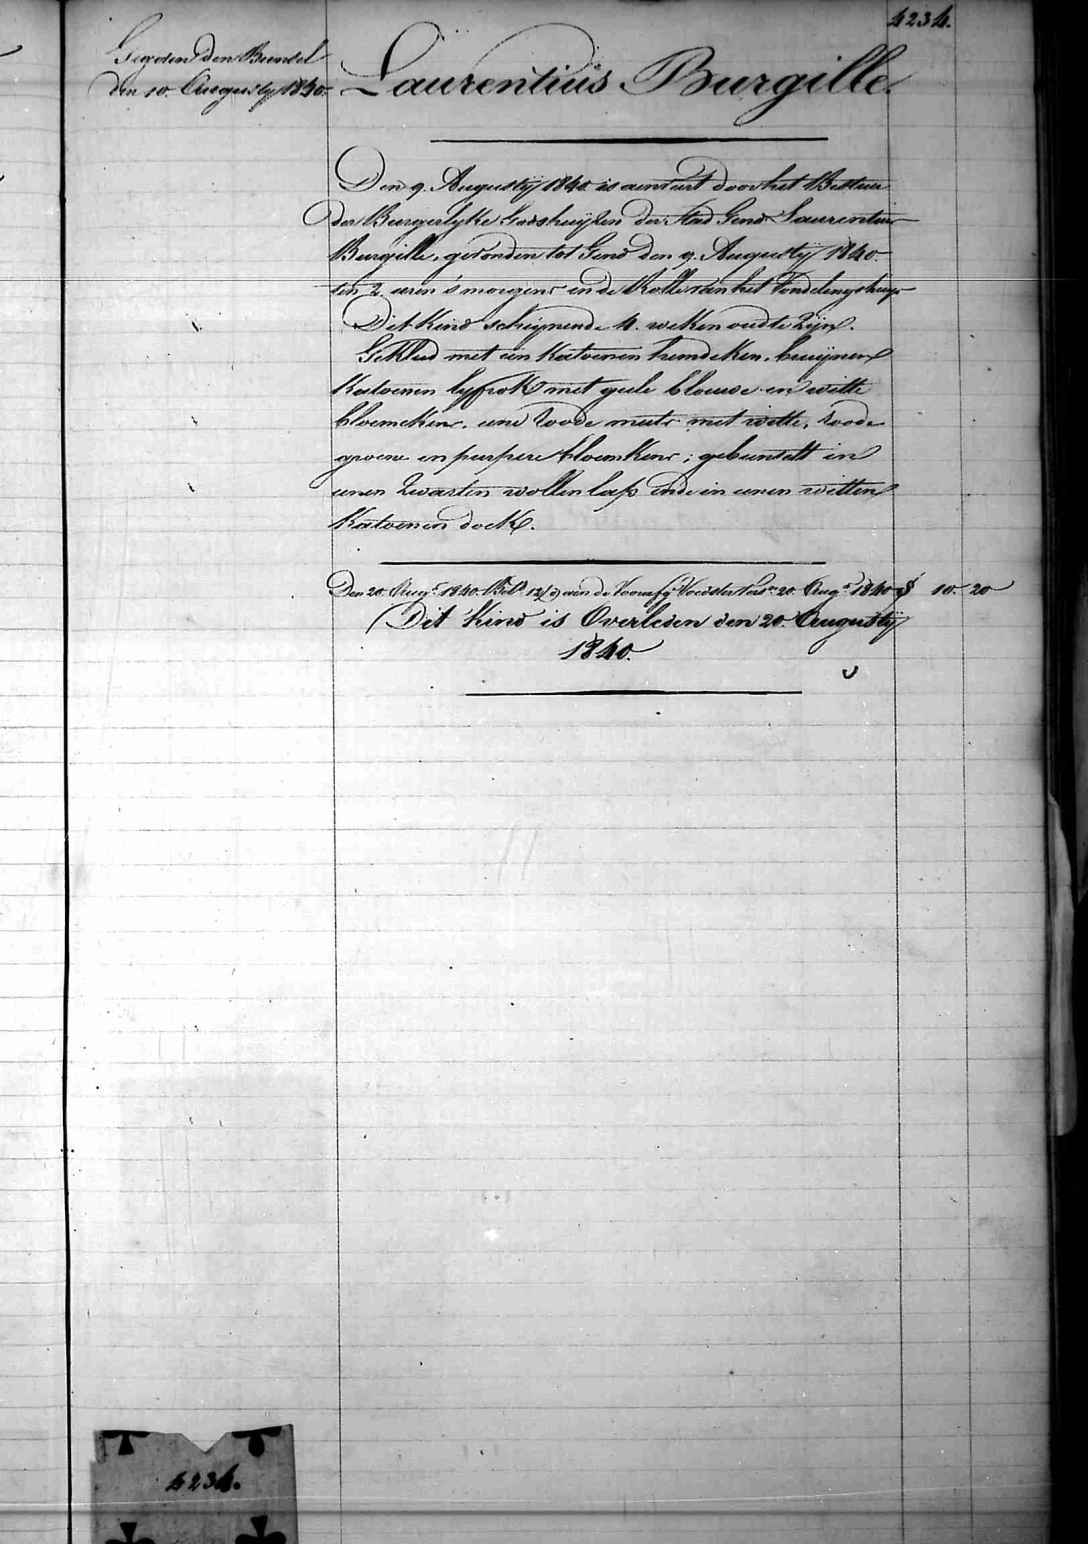 4234.
Gegeven den Bunsel
den 10. Augusty 1840.
Laurentius Burgille.
Den 9. Augustij 1840 is aenveirt door het Bestuer
der Burgerlyke Godshuijzen der Stad Gend Laurentius
Burgille, gevonden tot Gend den 9. Augustij 1840.
ten 2. uren 's morgens in de Rolle van het Vondelingshuijs
Dit Kind scheijnende 4. weken oud te Zijn.
Gekleed met een Katoenen hemdeken, bruijnen
Katoenen lyfrok met geele blauwe en witte
bloemekens, eene roode muts met witte, roode
groene en purpere bloemkens; gebunselt in
eenen Zwarten wollen lap ende in eenen witten
Katoenen doek.
Den 20. Aug. 1840. 12 aen de Voedster 20. Aug. 1840 10. 20
Dit Kind is Overleden den 20. Augustij
1840.
4234.